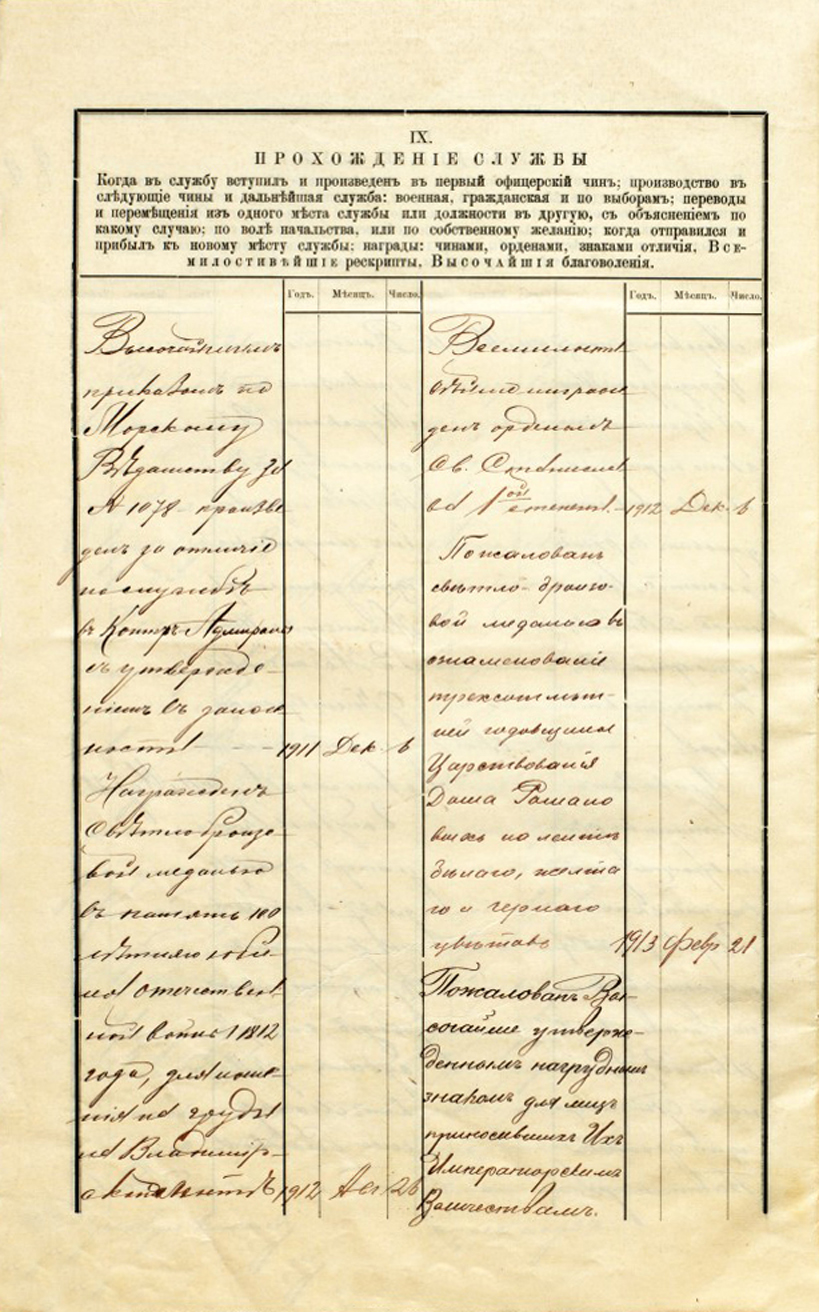 IX.
ПРОХОЖДЕНІЕ СЛУЖБЫ
Когда въ службу вступилъ и произведенъ въ первый офицерскій чинъ; производство въ
слѣдующіе чины и дальнѣйшая служба: военная, гражданская и по выборамъ; переводы
и перемѣщенія изъ одного мѣста службы или должности въ другую, съ объясненіемъ по
какому случаю: по волѣ начальства, или по собственному желанію; когда отправился и
прибылъ къ новому мѣсту службы; награды: чинами, орденами, знаками отличія, Все-
милостивѣйшіе рескрипты, Высочайшія благоволенія.
Годъ. Мѣсяцъ. Число.
Высочайшимъ
приказомъ по
Морскому
Вѣдомству за
№ 1078 произве
денъ за отличіе
по службѣ
въ Контръ Адмиралы
съ утвержде-
ніемъ въ долж
ности 1911 Дек. 6
Награжденъ
Свѣтлобронзо
вой медалью
въ память 100
лѣтняго юби-
лея отечествен
ной войны 1812
года, для ноше
нія на груди
на Владимір-
ской лентѣ 1912 Авг. 26
Годъ. Мѣсяцъ. Число.
Всемилости
вѣйше награж
денъ орденомъ
Св. Станислава
1ой степени. 1912 Дек. 6
Пожалованъ
свѣтло-бронзо-
вой медалью въ
ознаменованіе
трехсотлѣт-
ней годовщины
Царствованія
Дома Романо
выхъ на лентѣ
бѣлаго, желта
го и чернаго
цвѣтовъ 1913 Февр 21
Пожалованъ Вы-
сочайше утверж-
деннымъ нагруднымъ
знакомъ для лицъ
приносившихъ Ихъ
Императорскимъ
Величествамъ.